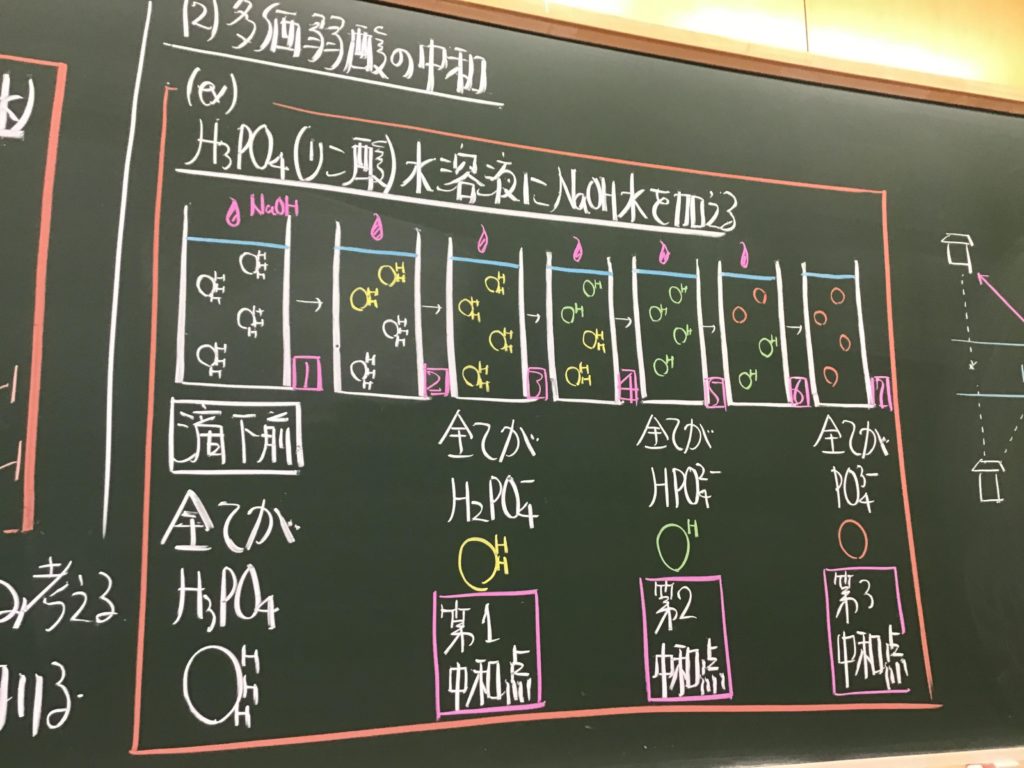 (2) 多価弱酸の中和
(ex)
H₃PO₄(リン酸)水溶液にNaOH水を加える
NaOH
1
2
3
4
5
6
7
滴下前
全てが
H₃PO₄
H
H
H
全てが
H₂PO₄⁻
H
H
第1
中和点
全てが
HPO₄²⁻
H
第2
中和点
全てが
PO₄³⁻
第3
中和点
考える